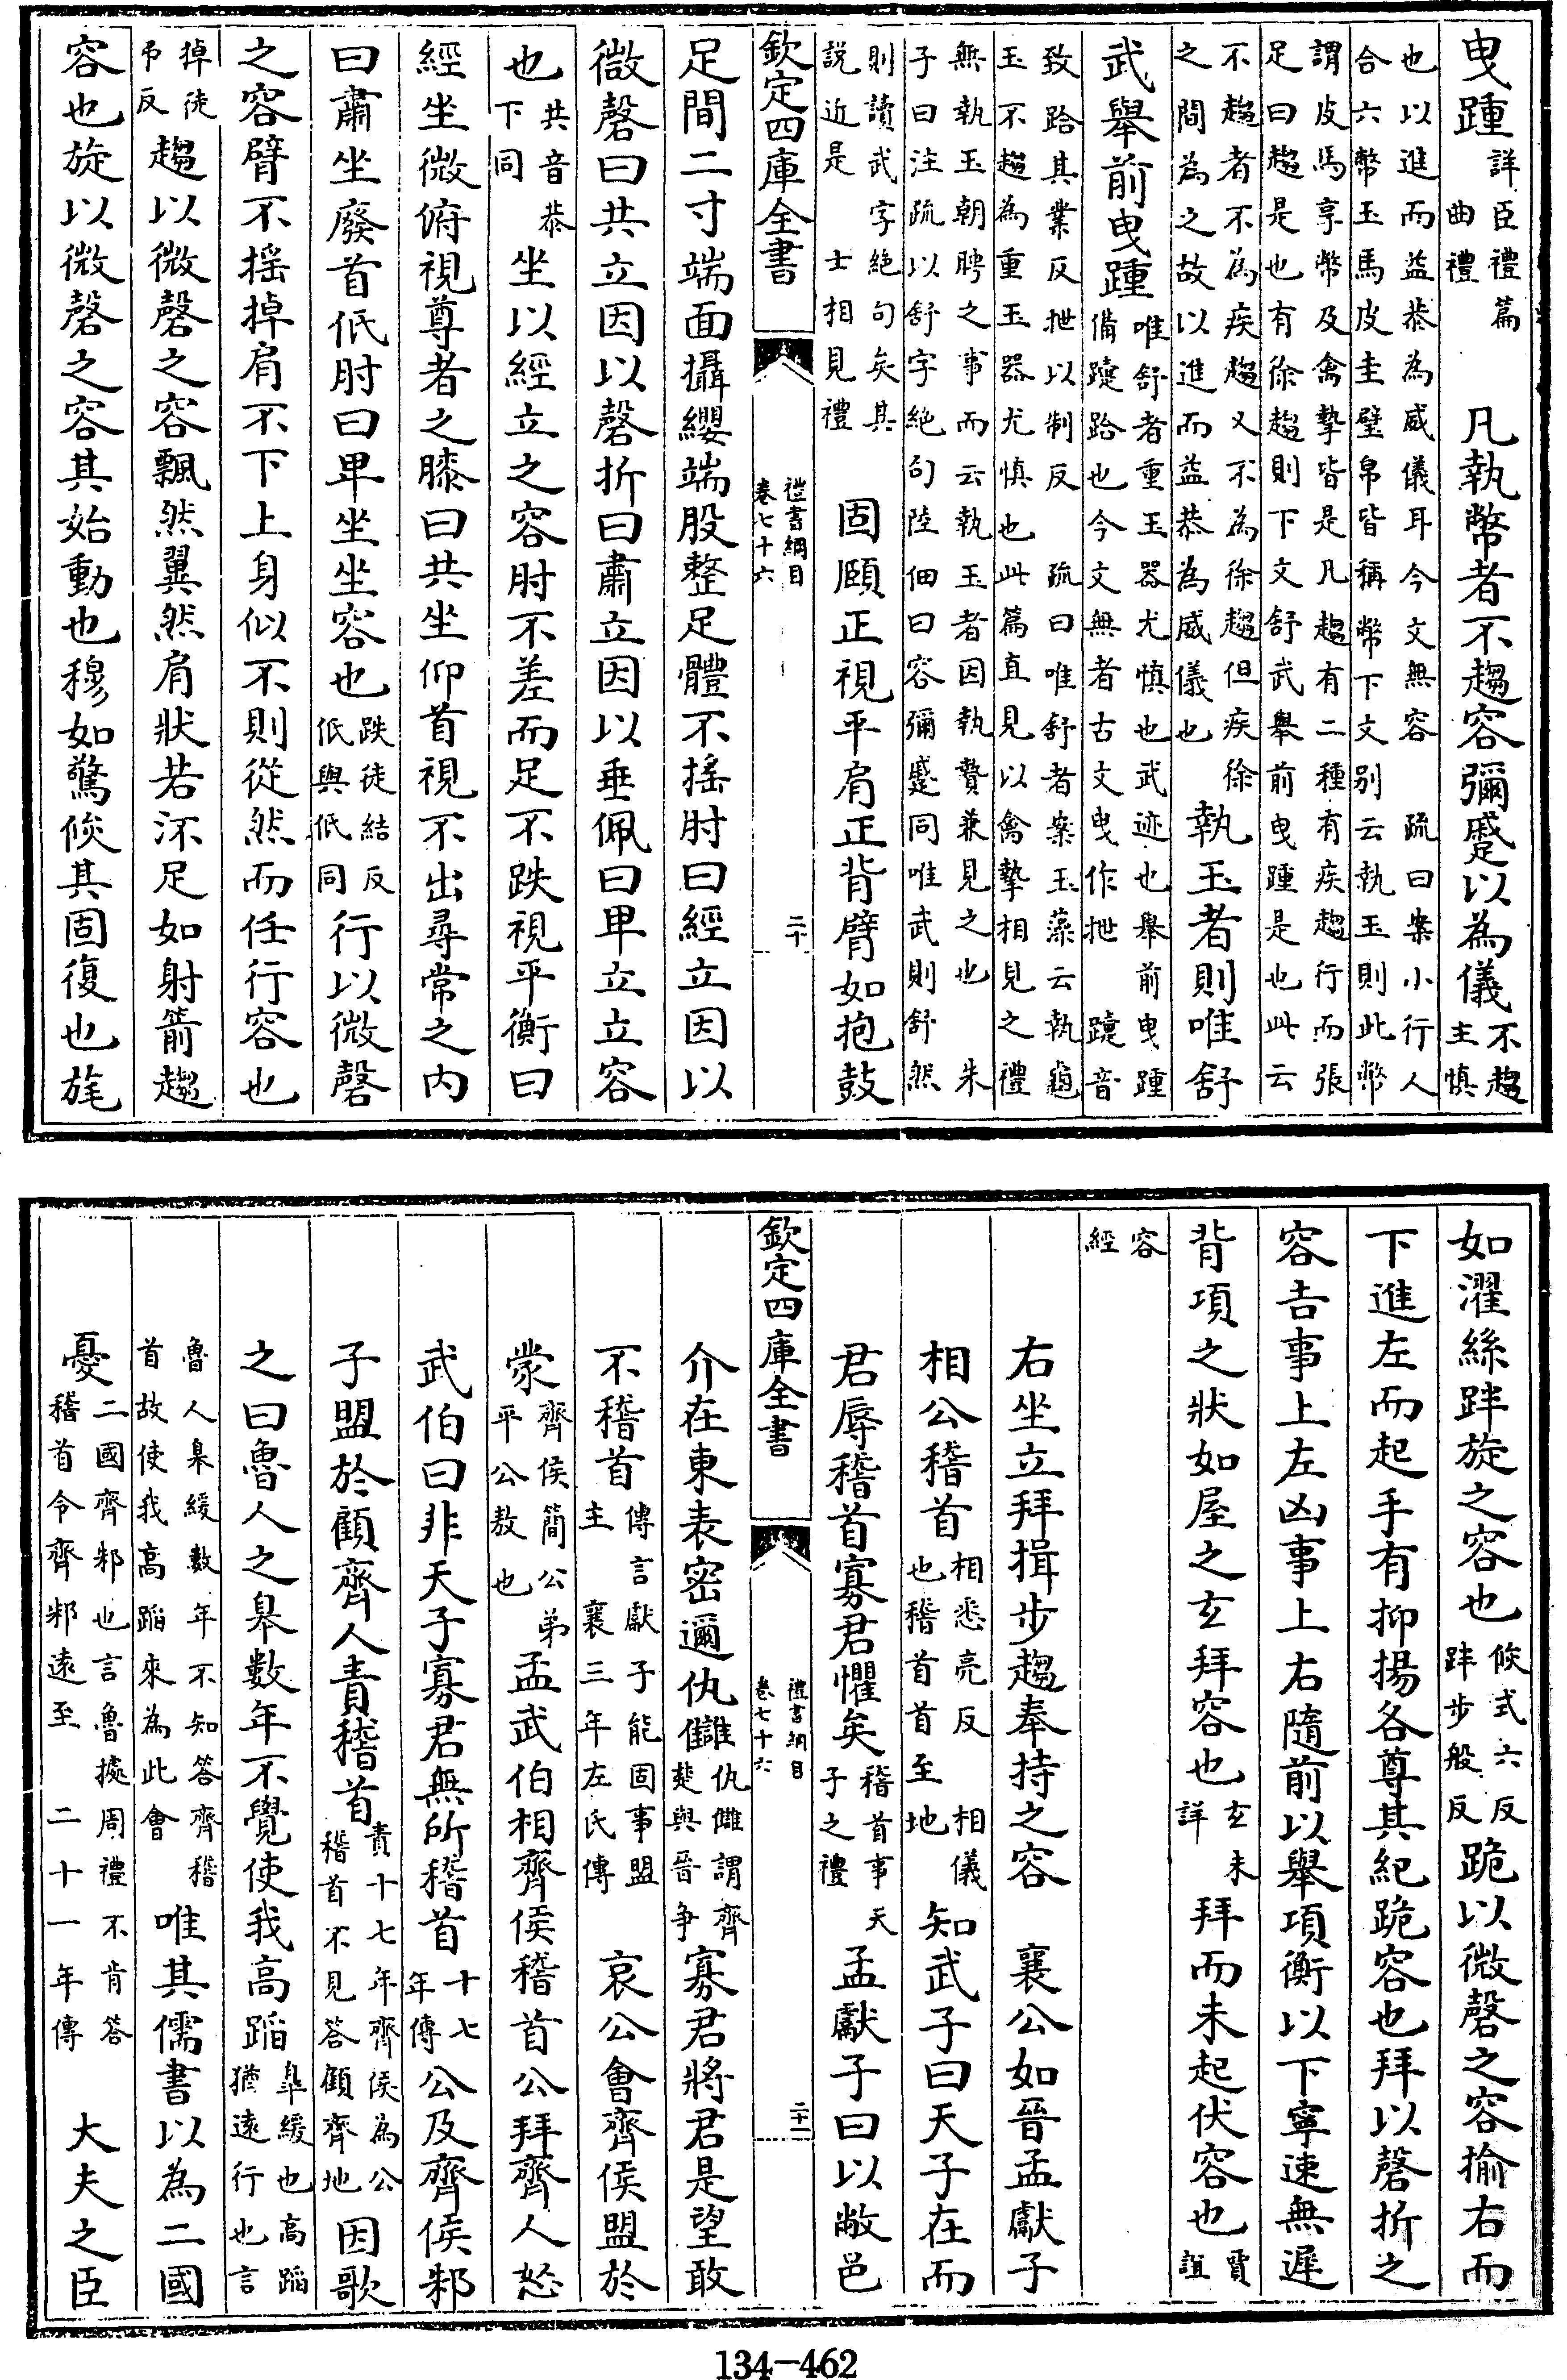 曳踵詳臣禮篇曲禮　凡執幣者不趨容彌蹙以為儀不趨主慎
也以進而益恭為威儀耳今文無容　疏曰案小行人合六幣玉馬皮圭璧帛皆稱幣下文别云執玉則此幣
謂皮馬享幣及禽摯皆是凡趨有二種有疾趨行而張足曰趨是也有徐趨則下文舒武舉前曳踵是也此云
不趨者不為疾趨又不為徐趨但疾徐之間為之故以進而益恭為威儀也執玉者則唯舒
武舉前曳踵唯舒者重玉器尤慎也武迹也舉前曳踵備躓跲也今文無者古文曳作抴　躓音
致跲其業反抴以制反　疏曰唯舒者案玉藻云執龜玉不趨為重玉器尤慎也此篇直見以禽摯相見之禮
無執玉朝聘之事而云執玉者因執贄兼見之也　朱子曰注疏以舒字絶句陸佃曰容彌蹙同唯武則舒然
則讀武字絶句矣其説近是　士相見禮　固頤正視平肩正背臂如抱鼓
欽定四庫全書　禮書綱目卷七十六　二十
足間二寸端面攝纓端股整足體不摇肘曰經立因以
微磬曰共立因以磬折曰肅立因以垂佩曰卑立立容
也共音恭下同坐以經立之容肘不差而足不跌視平衡曰
經坐微俯視尊者之膝曰共坐仰首視不出尋常之内
曰肅坐廢首低肘曰卑坐坐容也跌徒結反低與低同行以微磬
之容臂不摇掉肩不下上身似不則從然而任行容也
掉徒弔反趨以微磬之容飄然翼然肩狀若沠足如射箭趨
容也旋以微磬之容其始動也穆如驚倐其固復也旄
如濯絲跘旋之容也倐式六反跘步般反跪以微磬之容揄右而
下進左而起手有抑揚各尊其紀跪容也拜以磬折之
容吉事上左凶事上右隨前以舉項衡以下寧速無遲
背項之狀如屋之玄拜容也玄未詳拜而未起伏容也賈誼
容經
右坐立拜揖步趨奉持之容　襄公如晉孟獻子
相公稽首相悉亮反　相儀也稽首首至地知武子曰天子在而
君辱稽首寡君懼矣稽首事天子之禮孟獻子曰以敝邑
欽定四庫全書　禮書綱目卷七十六　二十一
介在東表密邇仇讎仇讎謂齊楚與晉争寡君將君是望敢
不稽首傳言獻子能固事盟主　襄三年左氏傳　哀公會齊侯盟於
蒙齊侯簡公弟平公敖也孟武伯相齊侯稽首公拜齊人怒
武伯曰非天子寡君無所稽首十七年傳公及齊侯邾
子盟於顧齊人責稽首責十七年齊侯為公稽首不見答顧齊地因歌
之曰魯人之臯數年不覺使我高蹈臯緩也高蹈猶遠行也言
魯人臯緩數年不知答齊稽首故使我高蹈來為此會唯其儒書以為二國
憂二國齊邾也言魯據周禮不肯答稽首令齊邾遠至　二十一年傳　大夫之臣
134-462